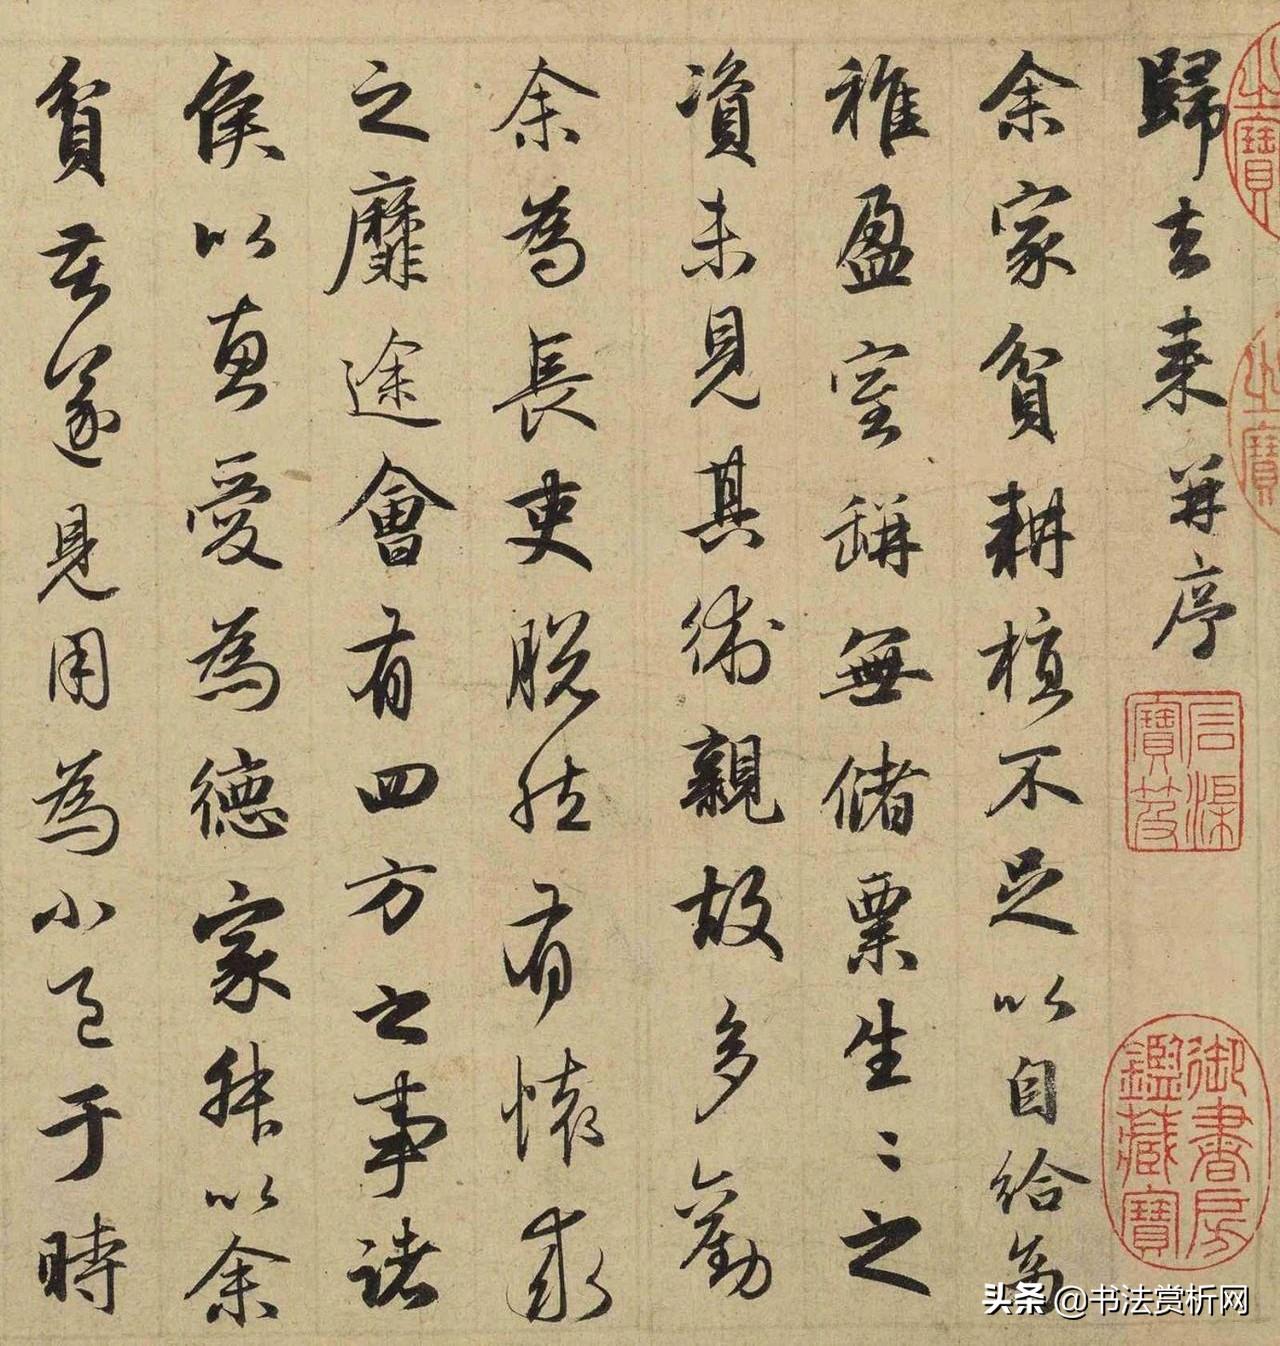 歸去来并序
余家貧耕植不足以自給幼
稚盈室缾無儲粟生〻之
資未見其術親故多勸
余為長吏脱然有懷求
之靡途會有四方之事諸
侯以惠愛為德家叔以余
貧苦遂見用為小邑于時
之寶
之寶
石渠寶笈
御書房鑑藏寶
头条 @书法赏析网